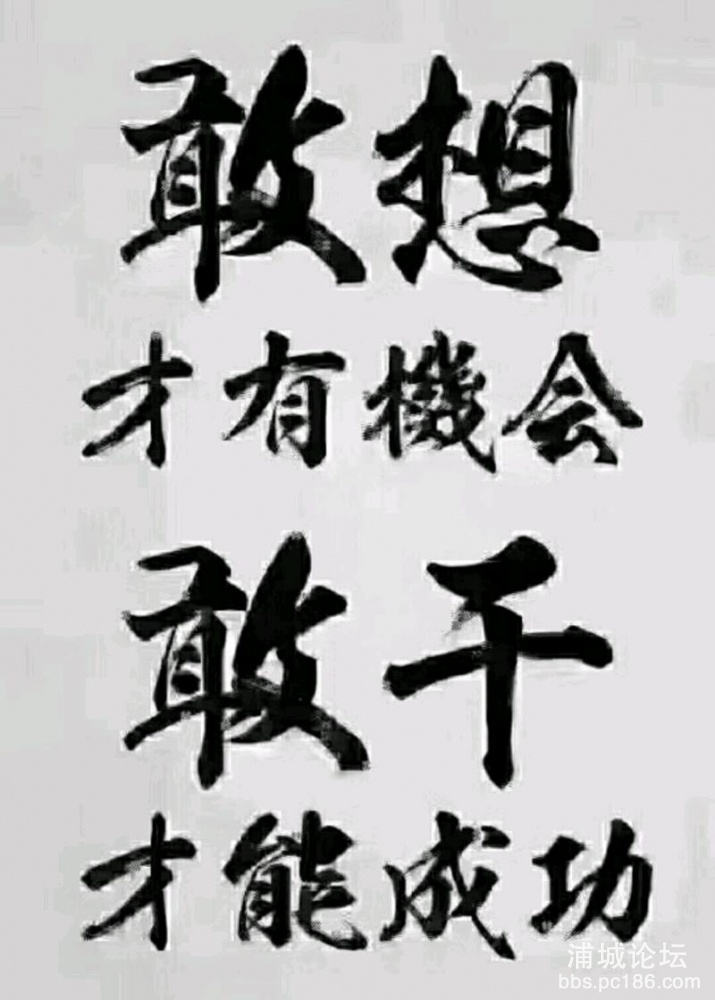 敢想
才有機会
敢干
才能成功
浦城论坛
bbs.pc186.com